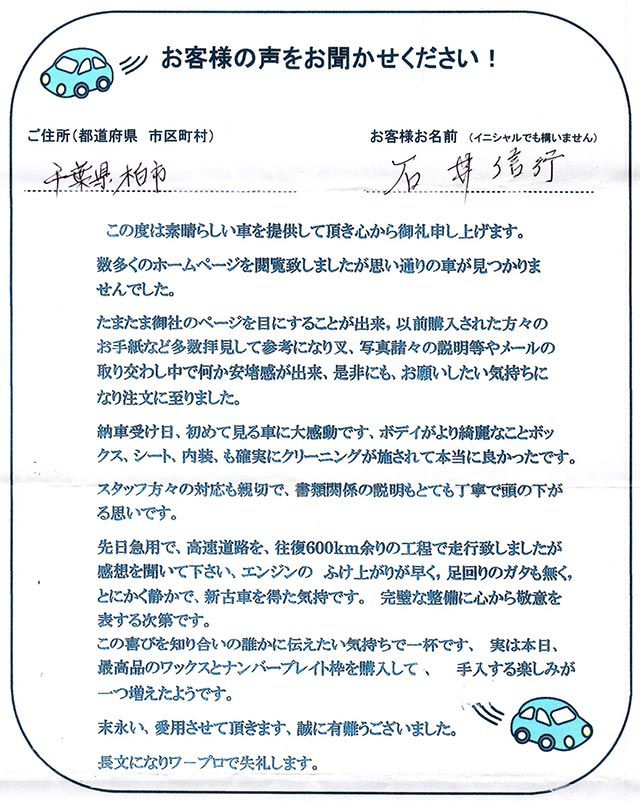 お客様の声をお聞かせください！
ご住所（都道府県　市区町村）
お客様お名前　（イニシャルでも構いません）
千葉県柏市
石井信行
この度は素晴らしい車を提供して頂き心から御礼申し上げます。
数多くのホームページを閲覧致しましたが思い通りの車が見つかりま
せんでした。
たまたま御社のページを目にすることが出来，以前購入された方々の
お手紙など多数拝見して参考になり又、写真諸々の説明等やメールの
取り交わし中で何か安堵感が出来、是非にも、お願いしたい気持ちに
なり注文に至りました。
納車受け日、初めて見る車に大感動です、ボデイがより綺麗なことボッ
クス、シート、内装、も確実にクリーニングが施されて本当に良かったです。
スタッフ方々の対応も親切で、書類関係の説明もとても丁寧で頭の下が
る思いです。
先日急用で、高速道路を、往復600km余りの工程で走行致しましたが
感想を聞いて下さい、エンジンの　ふけ上がりが早く，足回りのガタも無く，
とにかく静かで、新古車を得た気持です。　完璧な整備に心から敬意を
表する次第です。
この喜びを知り合いの誰かに伝えたい気持ちで一杯です、　実は本日、
最高品のワックスとナンバープレイト枠を購入して 、　手入する楽しみが
一つ増えたようです。
末永い、愛用させて頂きます、誠に有難うございました。
長文になりワープロで失礼します。